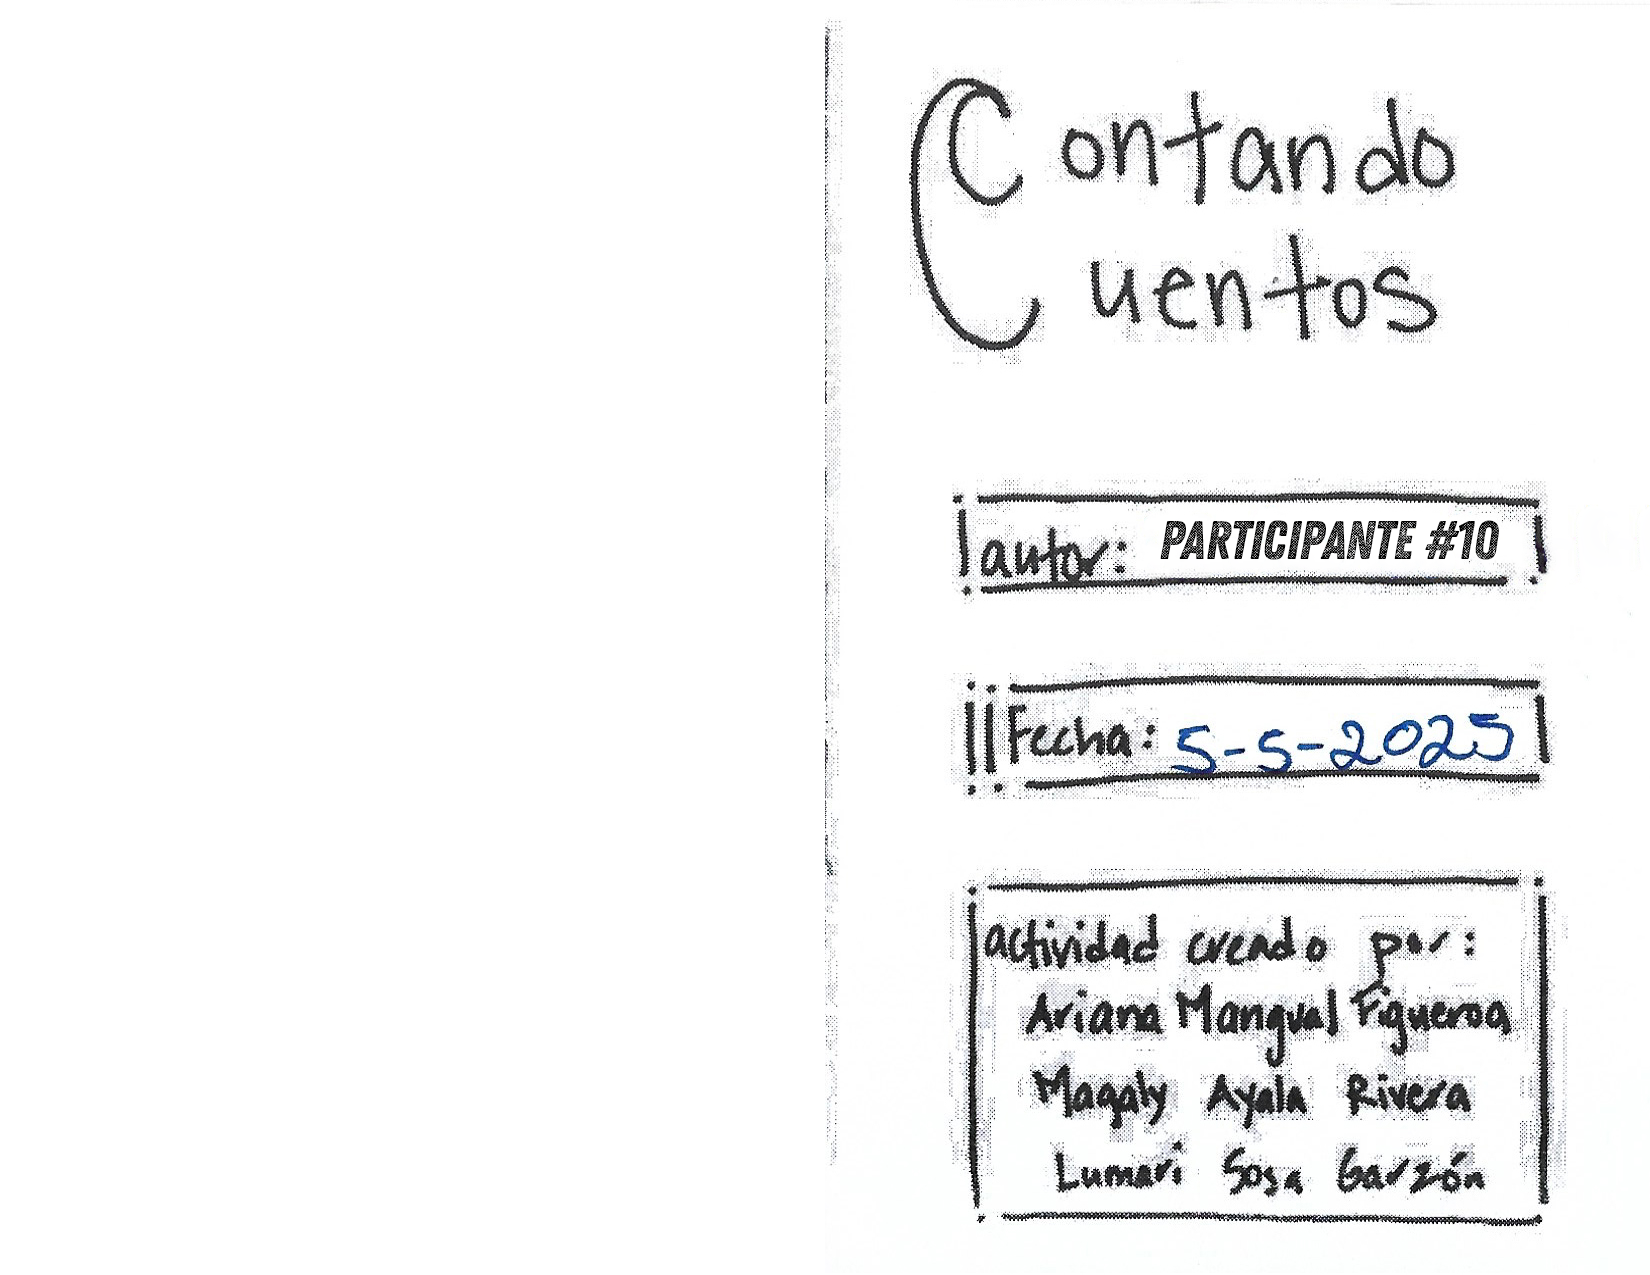 Contando
Cuentos
autor: PARTICIPANTE #10
Fecha: 5-5-2025
actividad creado por:
Ariana Mangual Figueroa
Magaly Ayala Rivera
Lumari Sosa Garzón